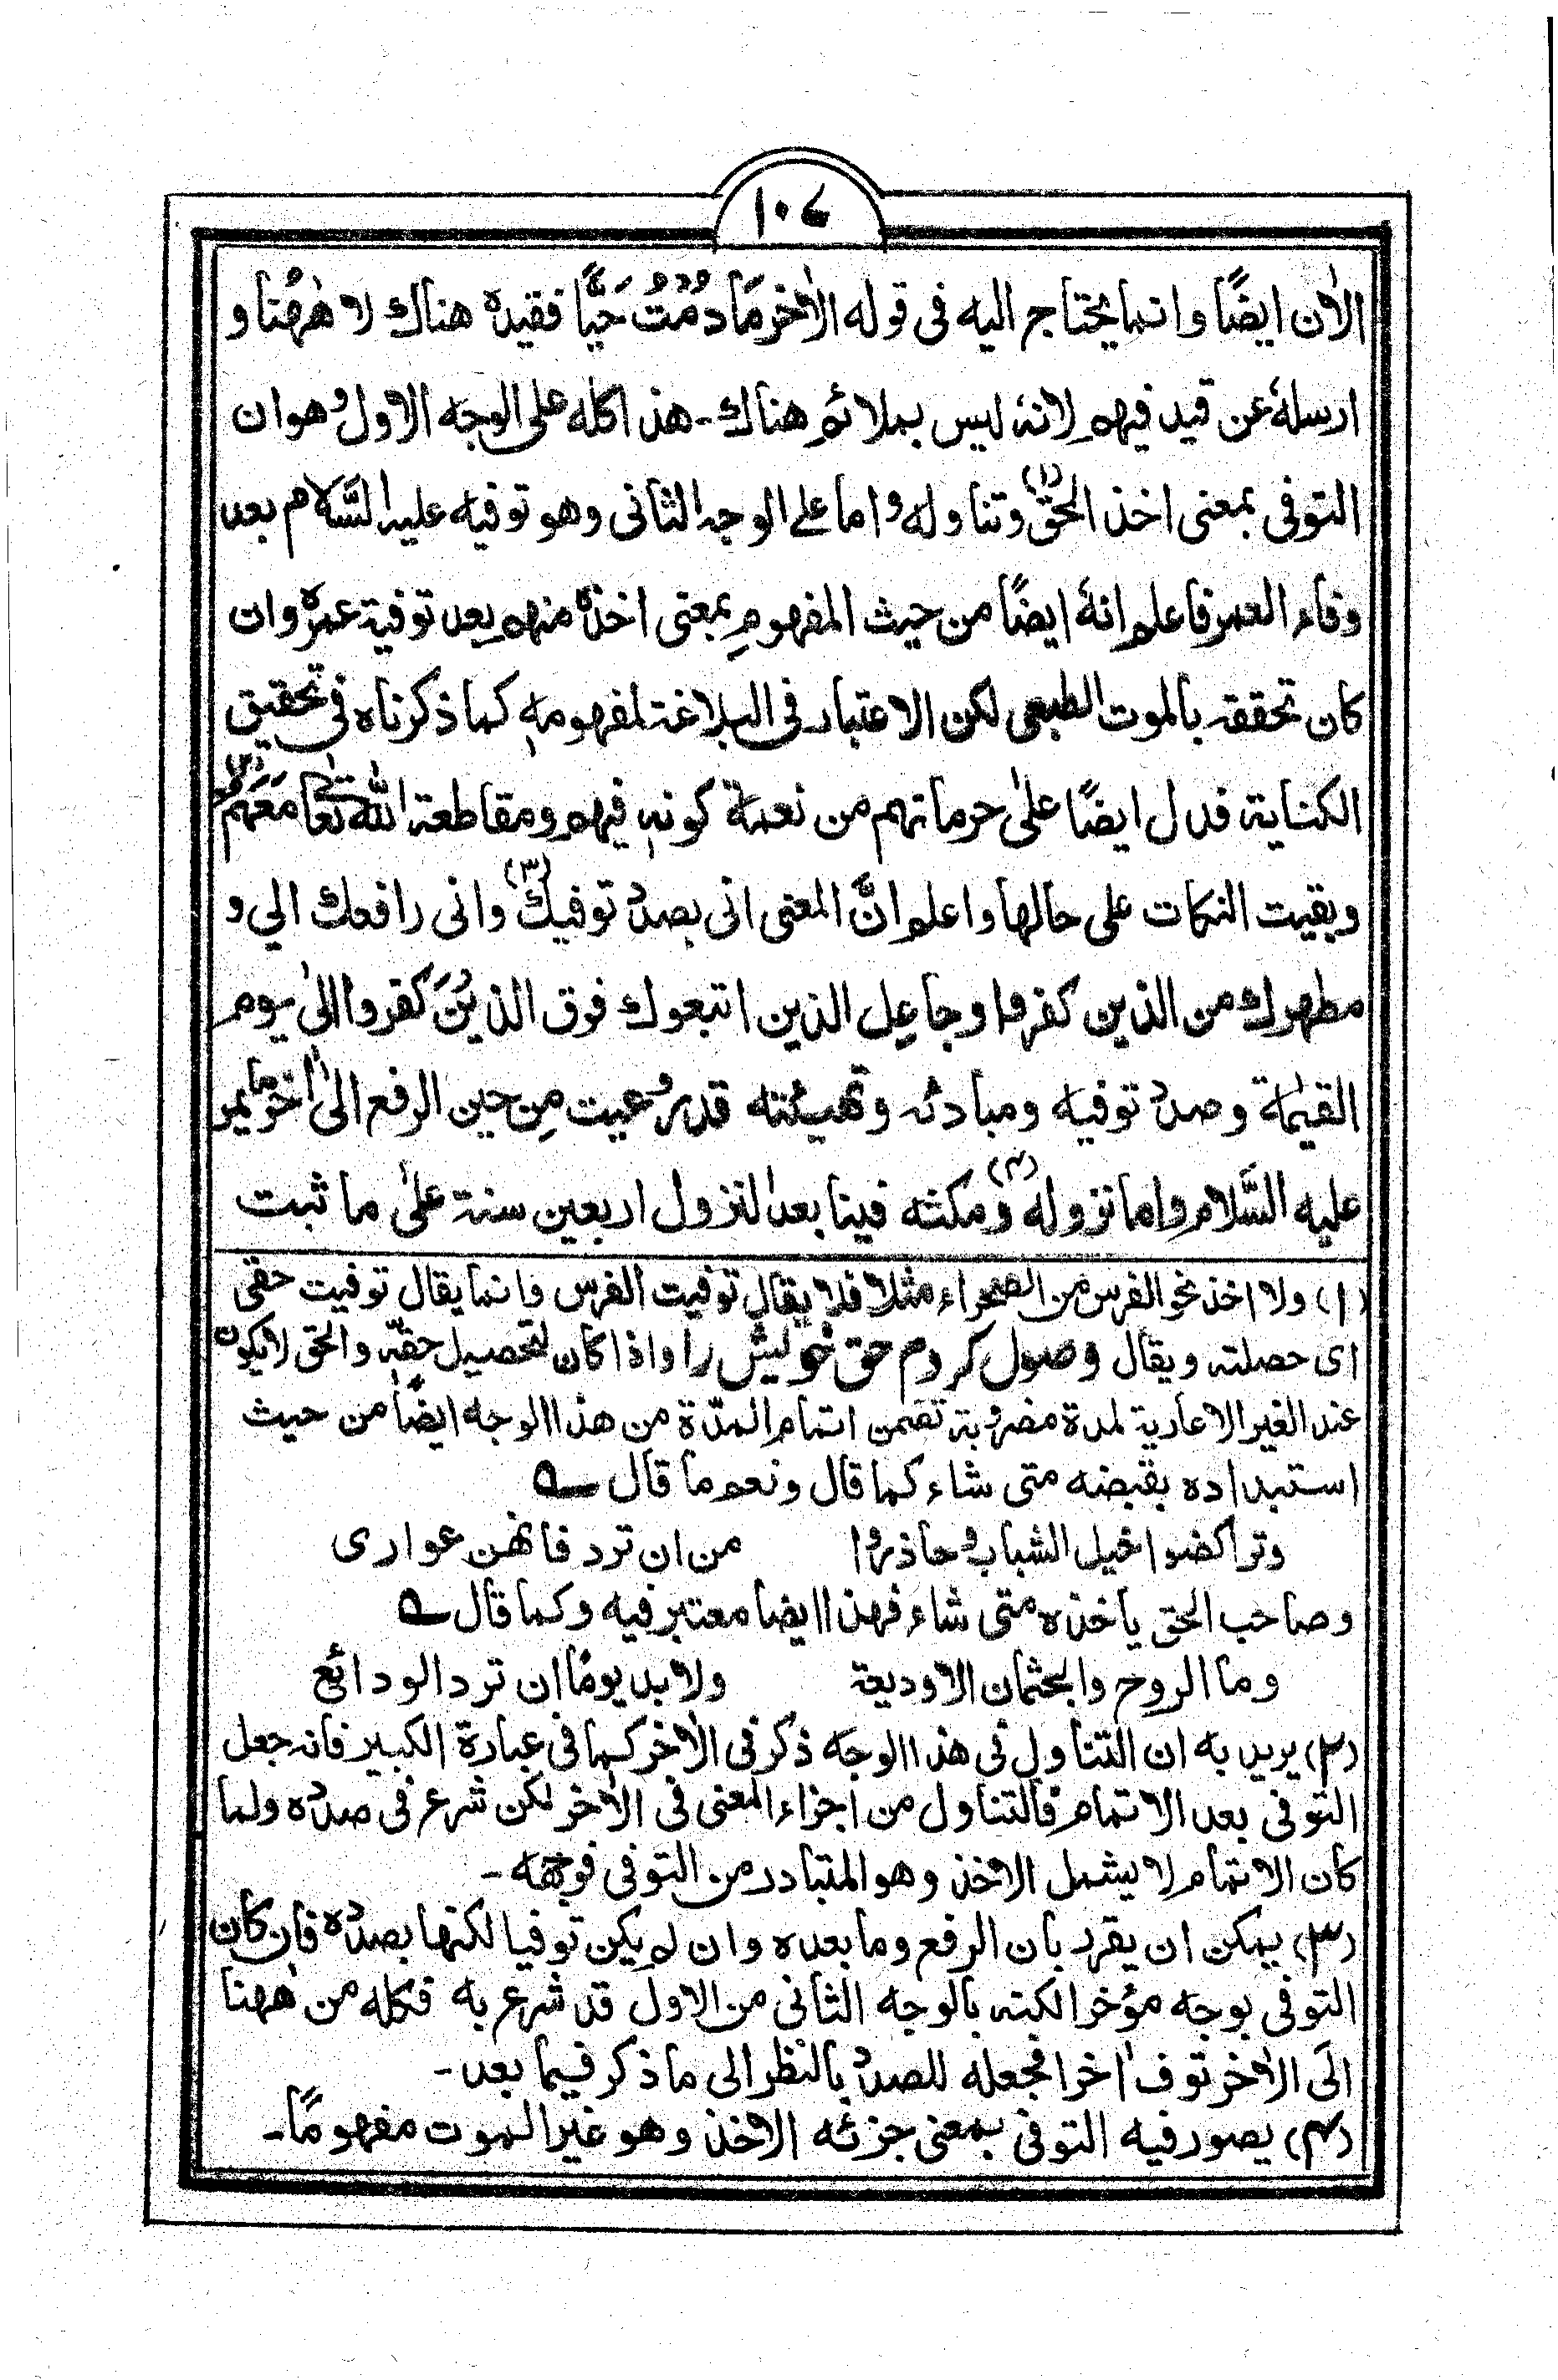 ١٠٧
الاٰن ايضًا وانما يحتاج اليه فى قوله الاٰخر مَا دُمْتُ حَيًّا فقيده هناك لا هٰهُنا و
ارسلهٗ عن قيد فيهم لانهٗ ليس بملائم هناك ـ هذا كله على الوجه الاول وهو ان
التوفى بمعنى اخذ الحق (١) وتناوله واما على الوجه الثانى وهو توفيه عليه السَّلام بعد
وفاء العمر فاعلم انهٗ ايضًا من حيث المفهوم بمعنى اخذهٖ منهم بعد توفية عمره وان
كان تحققه بالموت الطبعى لكن الاعتبار فى البلاغة لمفهومهٖ كما ذكرناه فى تحقيق
الكناية فدل ايضًا علىٰ حرمانهم من نعمة كونهٖ فيهم ومقاطعة اللّٰه تعالىٰ مَعَهم (٢)
وبقيت النكات على حالها واعلم انَّ المعنى انى بصدد توفيك (٣) وانى رافعك الي و
مطهرك من الذين كفروا وجاعل الذين اتبعوك فوق الذين كَفروا الىٰ يوم
القيٰمة وصدد توفيه ومبادئه وتهيئته قد روعيت مِن حين الرفع الىٰ اٰخر ما يمر
عليه السَّلام واما نزوله (٤) ومكثه فينا بعد النزول اربعين سنة علىٰ ما ثبت
(١) ولا اخذ نحو الفرس من الصحراء مثلا فلا يقال توفيت الفرس وانما يقال توفيت حقى
اى حصلته ويقال وصول كردم حق خويش را واذا كان لتحصيل حقهٖ والحق لا يكون
عند الغير الا عارية لمدة مضروبة تضمن اتمام المدّة من هذا الوجه ايضًا من حيث
استبداده بقبضه متى شاء كما قال ونعم ما قال ؎
وتراكضوا خيل الشباب وحاذروا من ان ترد فانهن عوارى
وصاحب الحق ياخذه متى شاء فهذا ايضا معتبر فيه وكما قال ؎
وما الروح والجثمان الا وديعة ولا بد يومًا ان ترد الودائع
(٢) يريد به ان التناول فى هذا الوجه ذكر فى الاٰخر كما فى عبارة الكبير فانه جعل
التوفى بعد الاتمام فالتناول من اجزاء المعنى فى الاٰخر لكن شرع فى صدده ولما
كان الاتمام لا يشمل الاخذ وهو المتبادر من التوفى فوجهه ـ
(٣) يمكن ان يقرر بان الرفع وما بعده وان لم يكن توفيا لكنها بصدده فان كان
التوفى بوجه مؤخرا لكنه بالوجه الثانى من الاول قد شرع به فكله من ههنا
الَى الاٰخر توف اٰخرا فجعله للصدد بالنظر الى ما ذكر فيما بعد ـ
(٤) يصور فيه التوفى بمعنى جزئه الاخذ وهو غير الموت مفهومًا ـ